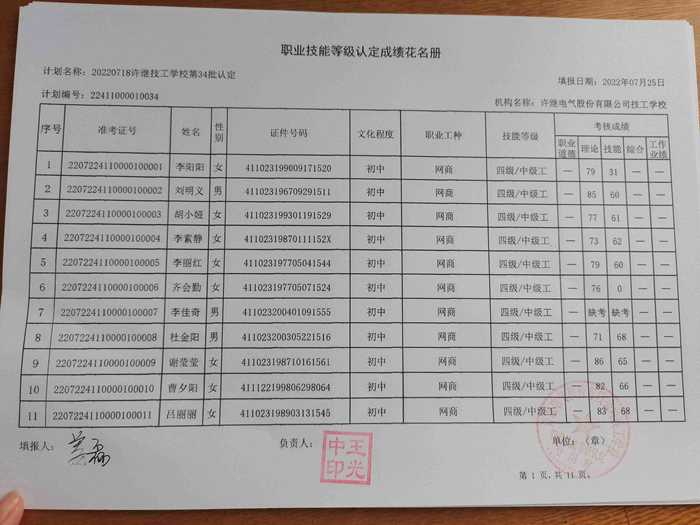 职业技能等级认定成绩花名册
计划名称：20220718许继技工学校第34批认定
填报日期：2022年07月25日
计划编号：22411000010034
机构名称：许继电气股份有限公司技工学校
序号 准考证号 姓名 性别 证件号码 文化程度 职业工种 技能等级 考核成绩
职业道德 理论 技能 综合 工作业绩
1 2207224110000100001 李阳阳 女 411023199009171520 初中 网商 四级/中级工 — 79 31 — —
2 2207224110000100002 刘明义 男 411023196709291511 初中 网商 四级/中级工 — 85 60 — —
3 2207224110000100003 胡小娅 女 411023199301191529 初中 网商 四级/中级工 — 77 61 — —
4 2207224110000100004 李素静 女 41102319870111152X 初中 网商 四级/中级工 — 73 62 — —
5 2207224110000100005 李丽红 女 411023197705041544 初中 网商 四级/中级工 — 79 60 — —
6 2207224110000100006 齐会勤 女 411023197705071524 初中 网商 四级/中级工 — 76 0 — —
7 2207224110000100007 李佳奇 男 411023200401091555 初中 网商 四级/中级工 — 缺考 缺考 — —
8 2207224110000100008 杜金阳 男 411023200305221516 初中 网商 四级/中级工 — 71 68 — —
9 2207224110000100009 谢莹莹 女 411023198710161561 初中 网商 四级/中级工 — 86 65 — —
10 2207224110000100010 曹夕阳 女 411122199806298064 初中 网商 四级/中级工 — 82 66 — —
11 2207224110000100011 吕丽丽 女 411023198903131545 初中 网商 四级/中级工 — 83 68 — —
填报人：
负责人：
王光中印
单位：（章）
第 1 页，共 11 页。